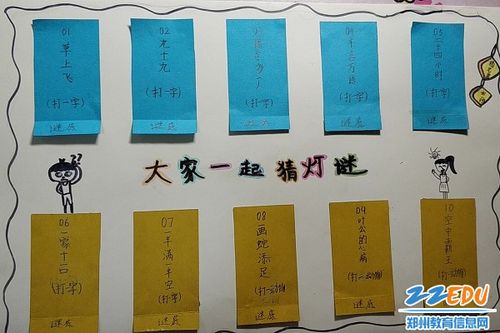 01
草上飞
(打一字)
谜底
02
九十九
(打一字)
谜底
(打一字)
谜底
04
(打一字)
谜底
05
二十四小时
(打一字)
谜底
大家一起猜灯谜
06
一家十一口
(打一字)
谜底
07
一半满一半空
(打一字)
谜底
08
画蛇添足
(打一动物)
谜底
09
叶公的心病
(打一动物)
谜底
10
空中霸王
(打一动物)
谜底
22EDU
郑州教育信息网